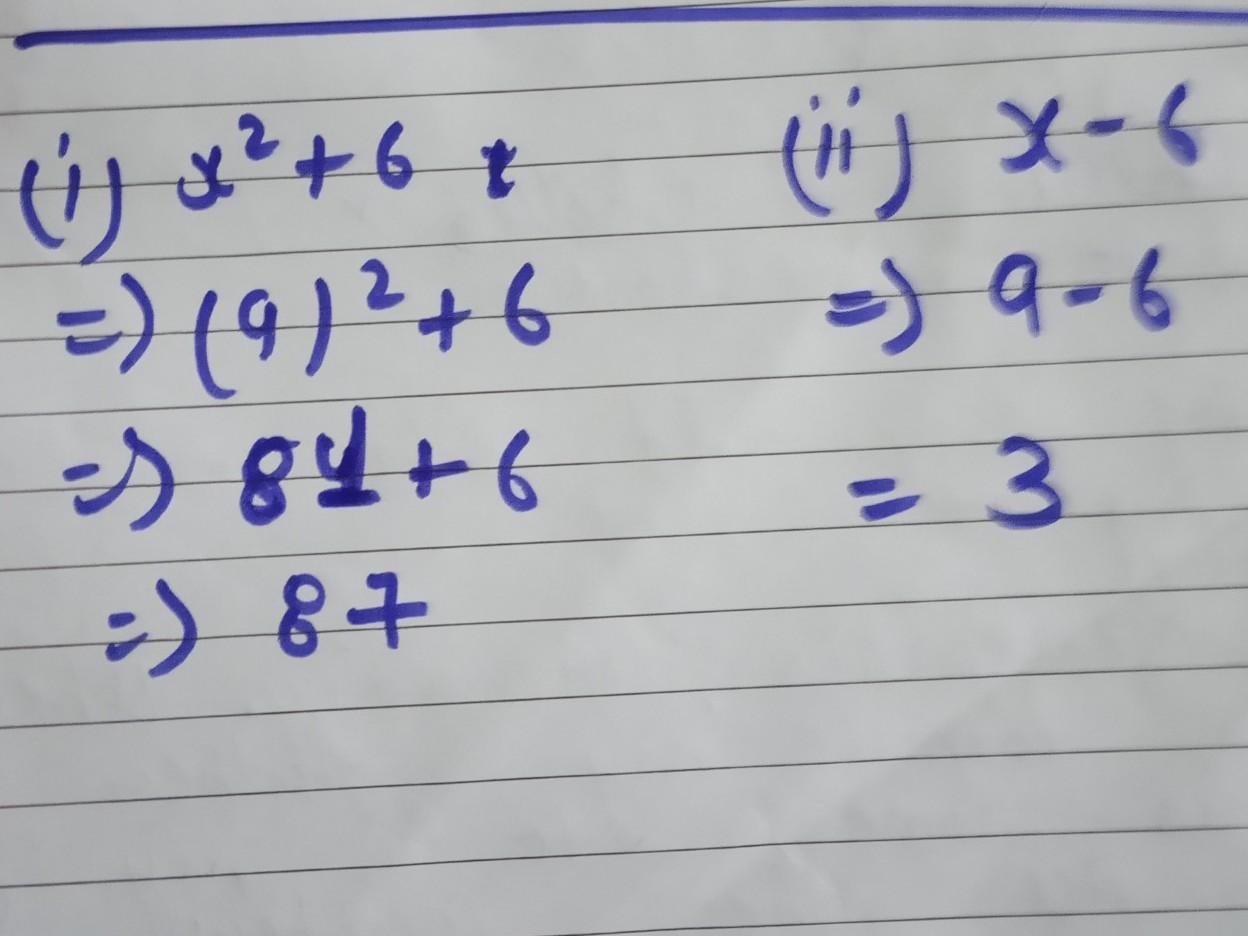 (i) x² + 6
=) (9)² + 6
=) 81 + 6
=) 87
(ii) x - 6
=) 9 - 6
= 3